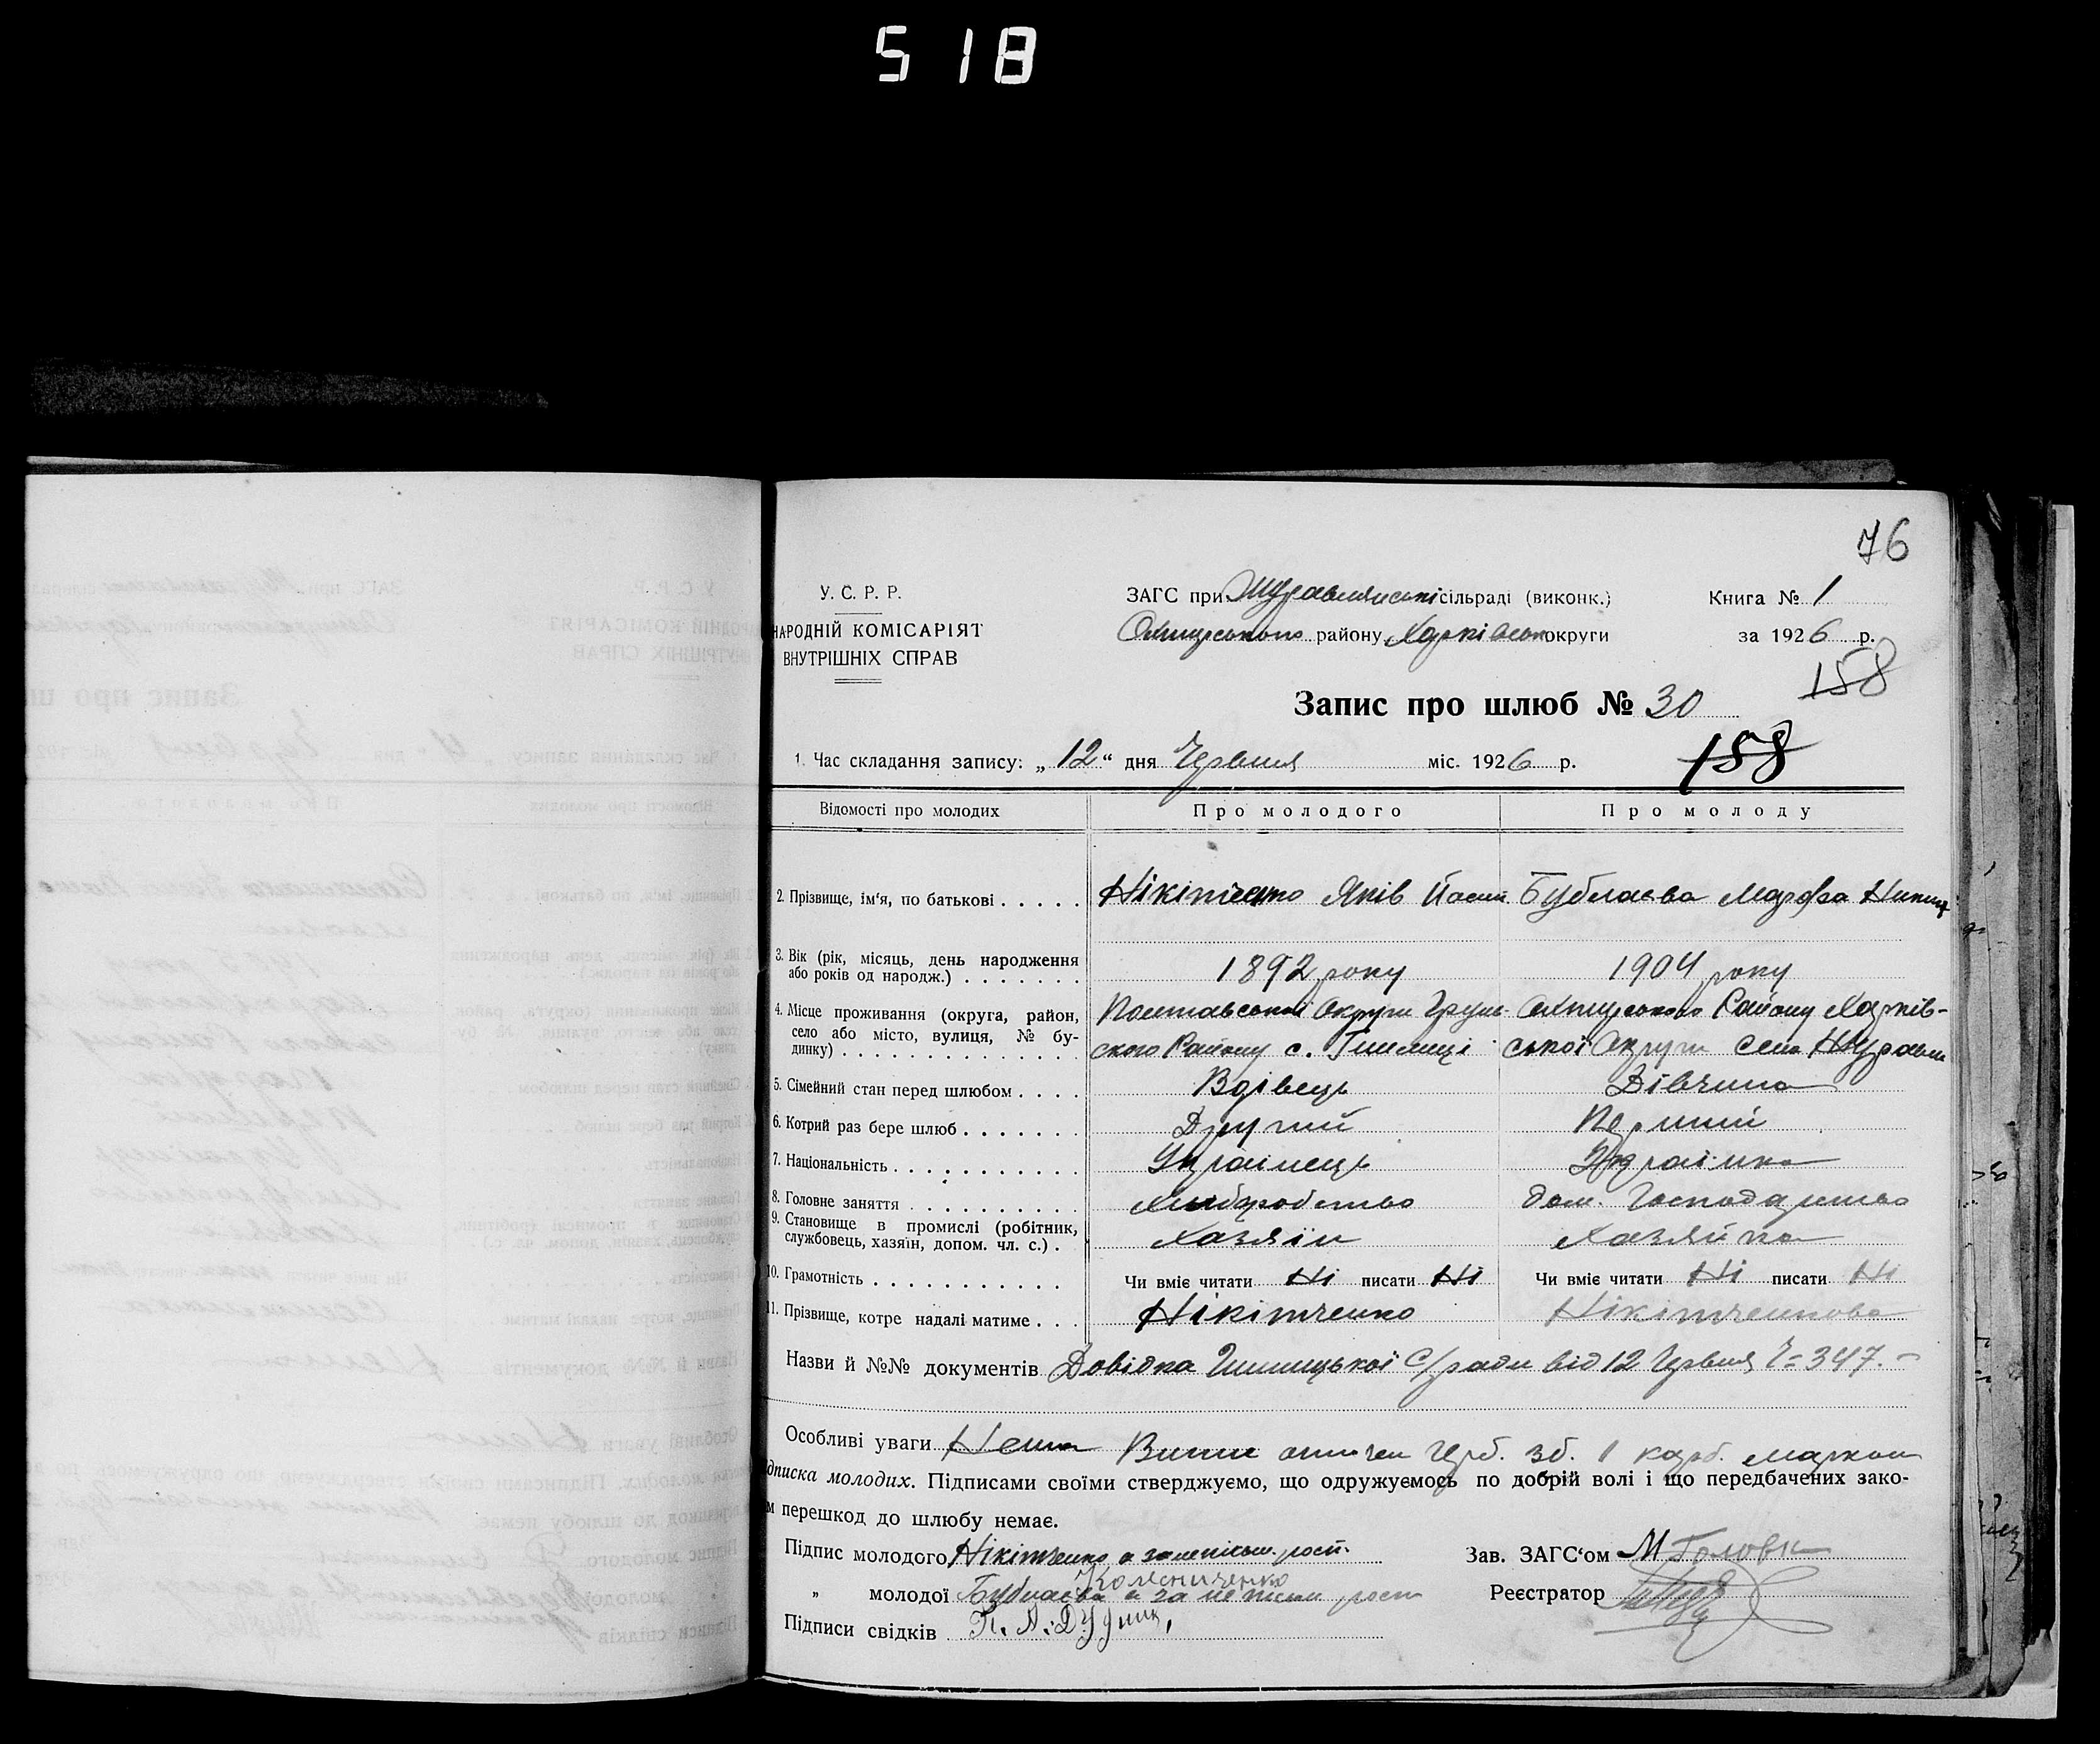 518
76
У. С. Р. Р.
НАРОДНІЙ КОМІСАРІЯТ
ВНУТРІШНІХ СПРАВ
ЗАГС при сільраді (виконк.)
Охтирського району Харківськ округи
Книга № 1
за 1926 р.
158
Запис про шлюб № 30
158
1. Час складання запису: „12“ дня Червня міс. 1926 р.
Відомості про молодих Про молодого Про молоду
2. Прізвище, ім‘я, по батькові . . . . . Нікітченко Яків Бублаєва Марфа
3. Вік (рік, місяць, день народження
або років од народж.) . . . . . . . 1892 року 1904 року
4. Місце проживання (округа, район, Полтавської Округи Грунь- Охтирського Району Харків-
село або місто, вулиця, № бу- ского Району с. ської Округи Село Журавне
динку) . . . . . . . . . . . . . . .
5. Сімейний стан перед шлюбом . . . . Вдівець Дівчина
6. Котрий раз бере шлюб . . . . . . . Другий Перший
7. Національність . . . . . . . . . . . Українець Українка
8. Головне заняття . . . . . . . . . . Хліборобство дом. Господарство
9. Становище в промислі (робітник,
службовець, хазяїн, допом. чл. с.) . Хазяїн Хазяйка
10. Грамотність . . . . . . . . . . . Чи вміє читати Ні писати Ні Чи вміє читати Ні писати Ні
11. Прізвище, котре надалі матиме . . . Нікітченко Нікітченкова
Назви й №№ документів Довідка С/ради від 12 Червня Ч= 347. –
Особливі уваги Нема 1 карб. маркою
дписка молодих. Підписами своїми стверджуємо, що одружуємось по добрій волі і що передбачених зако-
м перешкод до шлюбу немає.
Підпис молодого Нікітченко а Зав. ЗАГС‘ом М Головк
Колесниченко
„ молодої Бублаєва а за рост Реєстратор
Підписи свідків П. А. Дудник,